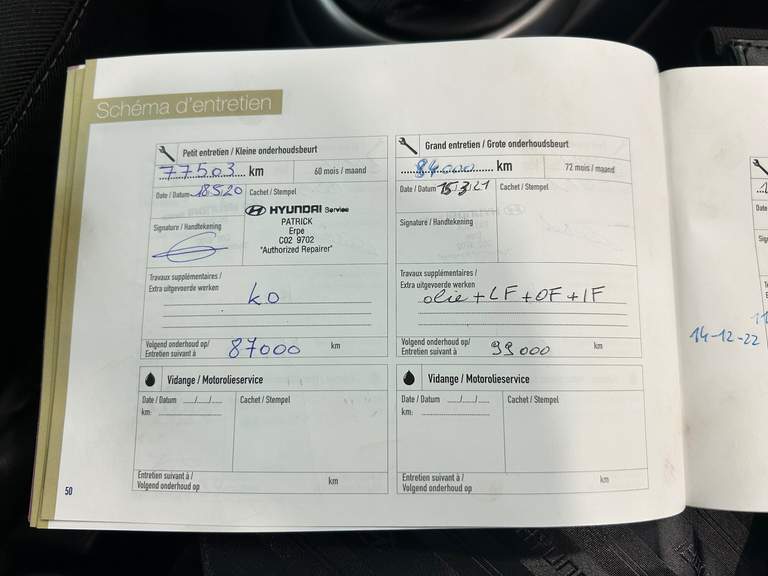 Schéma d'entretien
Petit entretien / Kleine onderhoudsbeurt
77503 km
60 mois / maand
Date / Datum 18 5 20
Cachet / Stempel
HYUNDAI Service
PATRICK
Erpe
C02 9702
"Authorized Repairer"
Signature / Handtekening
Travaux supplémentaires /
Extra uitgevoerde werken
k.o
Volgend onderhoud op/
Entretien suivant à
87000 km
Grand entretien / Grote onderhoudsbeurt
84000 km
72 mois / maand
Date / Datum 15/3/21
Cachet / Stempel
Signature / Handtekening
Travaux supplémentaires /
Extra uitgevoerde werken
olie + LF + OF + IF
Volgend onderhoud op/
Entretien suivant à
99000 km
Vidange / Motorolieservice
Date / Datum ..../..../....
Cachet / Stempel
km:
Entretien suivant à /
Volgend onderhoud op
km
Vidange / Motorolieservice
Date / Datum ..../..../....
Cachet / Stempel
km:
Entretien suivant à /
Volgend onderhoud op
km
50
14-12-22